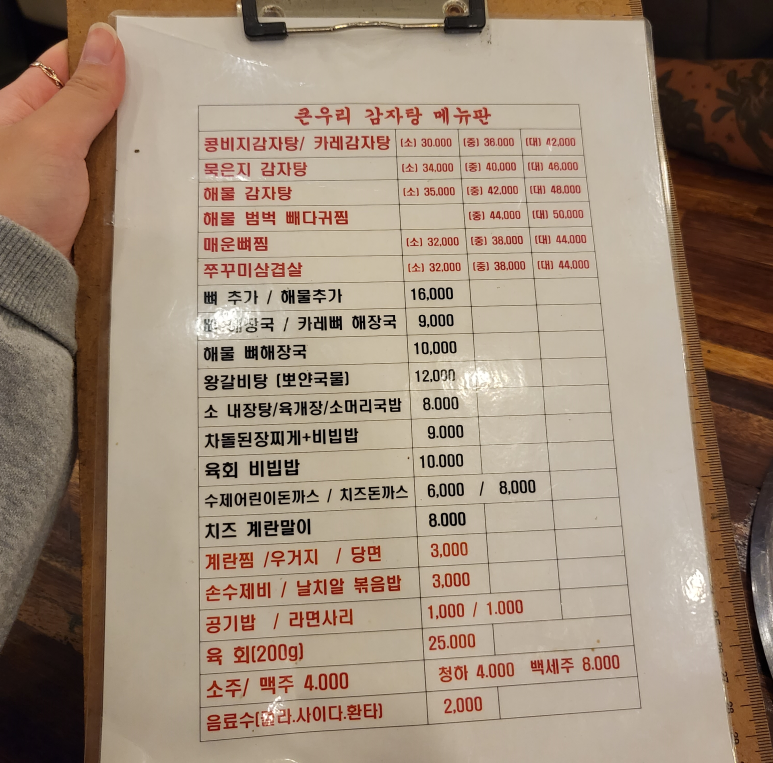 큰우리 감자탕 메뉴판
콩비지감자탕/ 카레감자탕 (소) 30.000 (중) 36.000 (대) 42,000
묵은지 감자탕 (소) 34,000 (중) 40.000 (대) 46,000
해물 감자탕 (소) 35,000 (중) 42,000 (대) 48.000
해물 범벅 뼈다귀찜 (중) 44,000 (대) 50.000
매운뼈찜 (소) 32,000 (중) 38,000 (대) 44,000
쭈꾸미삼겹살 (소) 32,000 (중) 38,000 (대) 44.000
뼈 추가 / 해물추가 16,000
해장국 / 카레뼈 해장국 9,000
해물 뼈해장국 10,000
왕갈비탕 (뽀얀국물) 12,000
소 내장탕/육개장/소머리국밥 8.000
차돌된장찌게+비빔밥 9.000
육회 비빔밥 10.000
수제어린이돈까스 / 치즈돈까스 6,000 / 8,000
치즈 계란말이 8.000
계란찜 /우거지 / 당면 3,000
손수제비 / 날치알 볶음밥 3,000
공기밥 / 라면사리 1,000 / 1.000
육 회(200g) 25.000
소주/ 맥주 4.000 청하 4.000 백세주 8.000
음료수(콜라.사이다.환타) 2,000